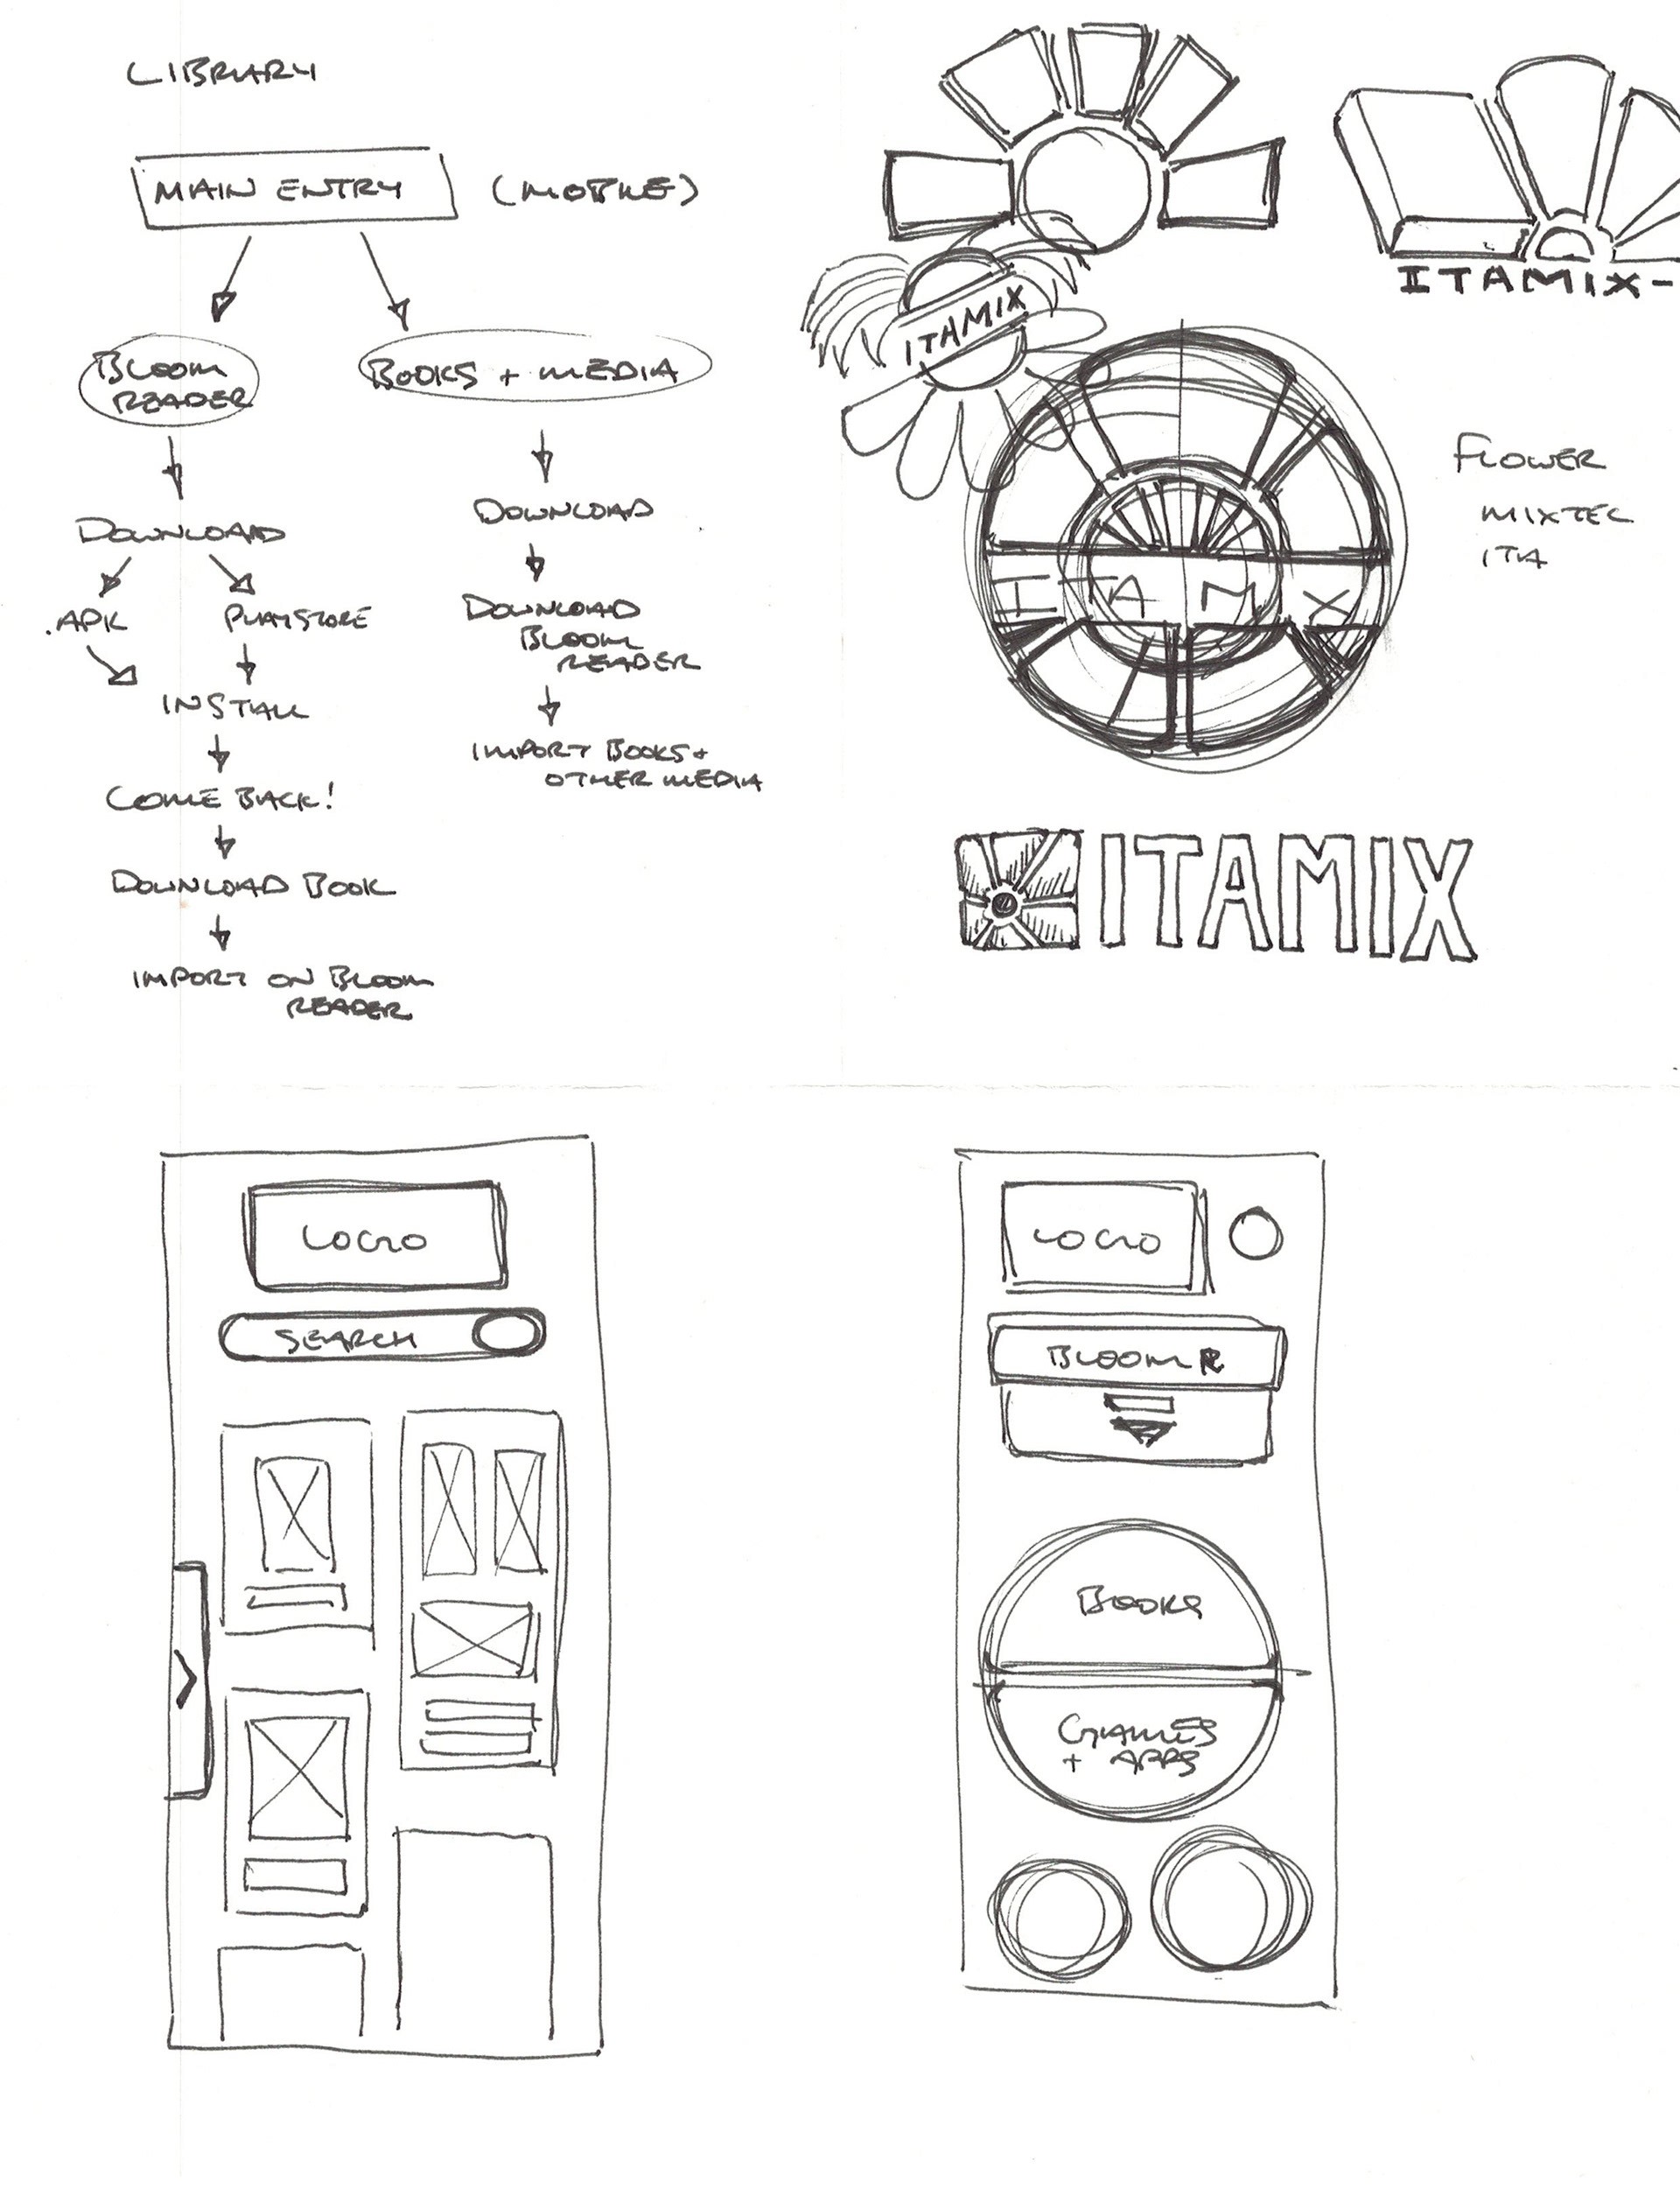 LIBRARY
MAIN ENTRY
(MOBILE)
BLOOM
READER
BOOKS + MEDIA
DOWNLOAD
.APK
PLAYSTORE
INSTALL
COME BACK!
DOWNLOAD BOOK
IMPORT ON BLOOM
READER
DOWNLOAD
DOWNLOAD
BLOOM
READER
IMPORT BOOKS +
OTHER MEDIA
ITAMIX-
ITAMIX
ITA MIX
FLOWER
MIXTEC
ITA
ITAMIX
LOGO
SEARCH
LOGO
BLOOM R
BOOKS
GAMES
+ APPS